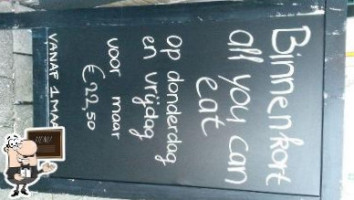 Binnenkort
all you can
eat
op donderdag
en vrijdag
voor maar
€ 22,50
VANAF 1 MAA
MENU